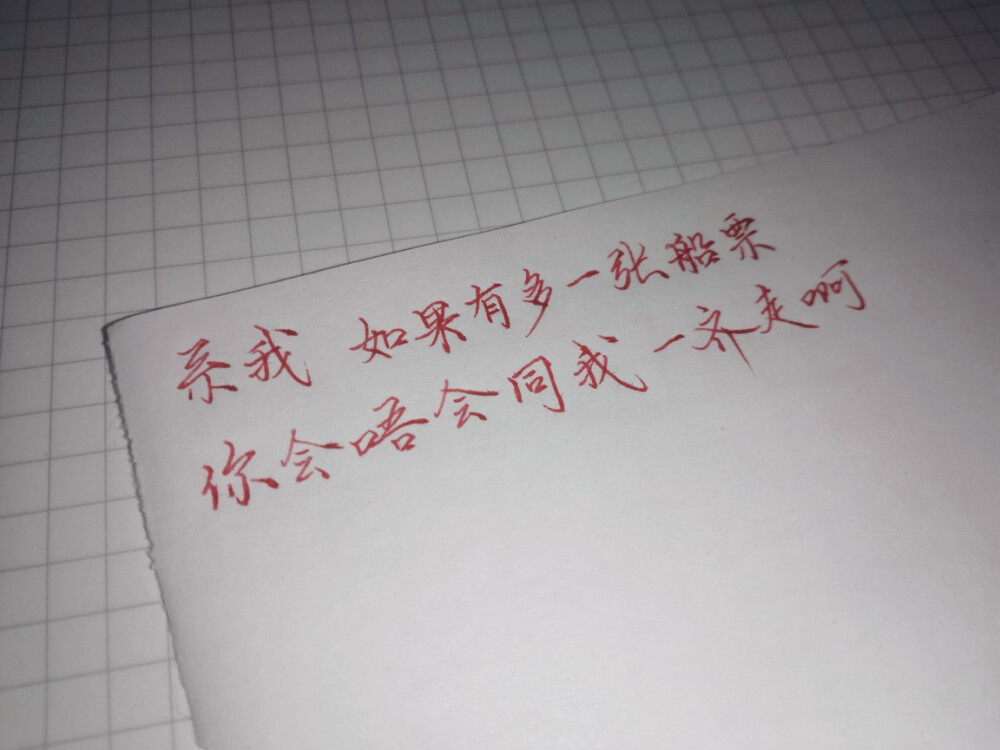 系我 如果有多一张船票
你会唔会同我一齐走啊